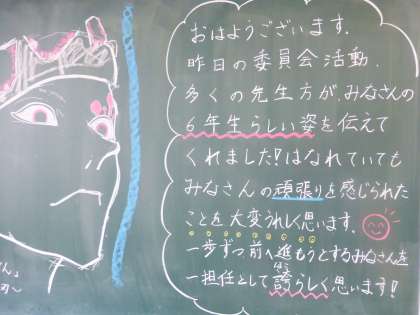 おはようございます。
昨日の委員会活動、
多くの先生方が、みなさんの
6年生らしい姿を伝えて
くれました!はなれていても
みなさんの頑張りを感じられた
ことを大変うれしく思います。
一歩ずつ前へ進もうとするみなさんを
一担任として誇らしく思います!
ほこ